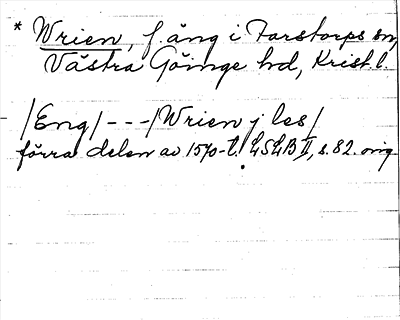 * Wrien, f. äng i Farstorps sn,
Västra Göinge hd, Krist. l.
/Eng/ - - - /Wrien j les/
förra delen av 1570-t. LSLB II, s. 82. orig